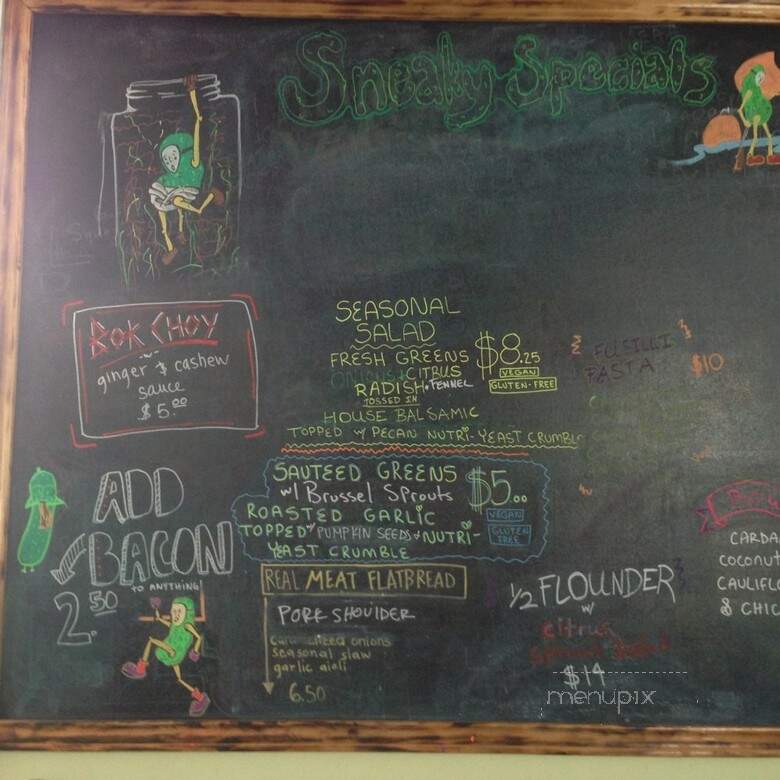 Sneaky Specials
BOK CHOY
ginger & cashew
sauce
$5.00
ADD
BACON
TO ANYTHING!
2.50
SEASONAL
SALAD
FRESH GREENS
CITRUS
RADISH + FENNEL
TOSSED IN
HOUSE BALSAMIC
TOPPED w/ PECAN NUTRI-YEAST CRUMBLE
$8.25
VEGAN
GLUTEN-FREE
SAUTEED GREENS
w/ Brussel Sprouts
ROASTED GARLIC
TOPPED w/ PUMPKIN SEEDS & NUTRI-
YEAST CRUMBLE
$5.00
VEGAN
GLUTEN
FREE
REAL MEAT FLATBREAD
PORK SHOULDER
onions
seasonal slaw
garlic aioli
6.50
FUSILLI
PASTA
$10
1/2 FLOUNDER
w/
citrus
$14
CARDA
COCONUT
CAULIFL
& CHIC
menupix